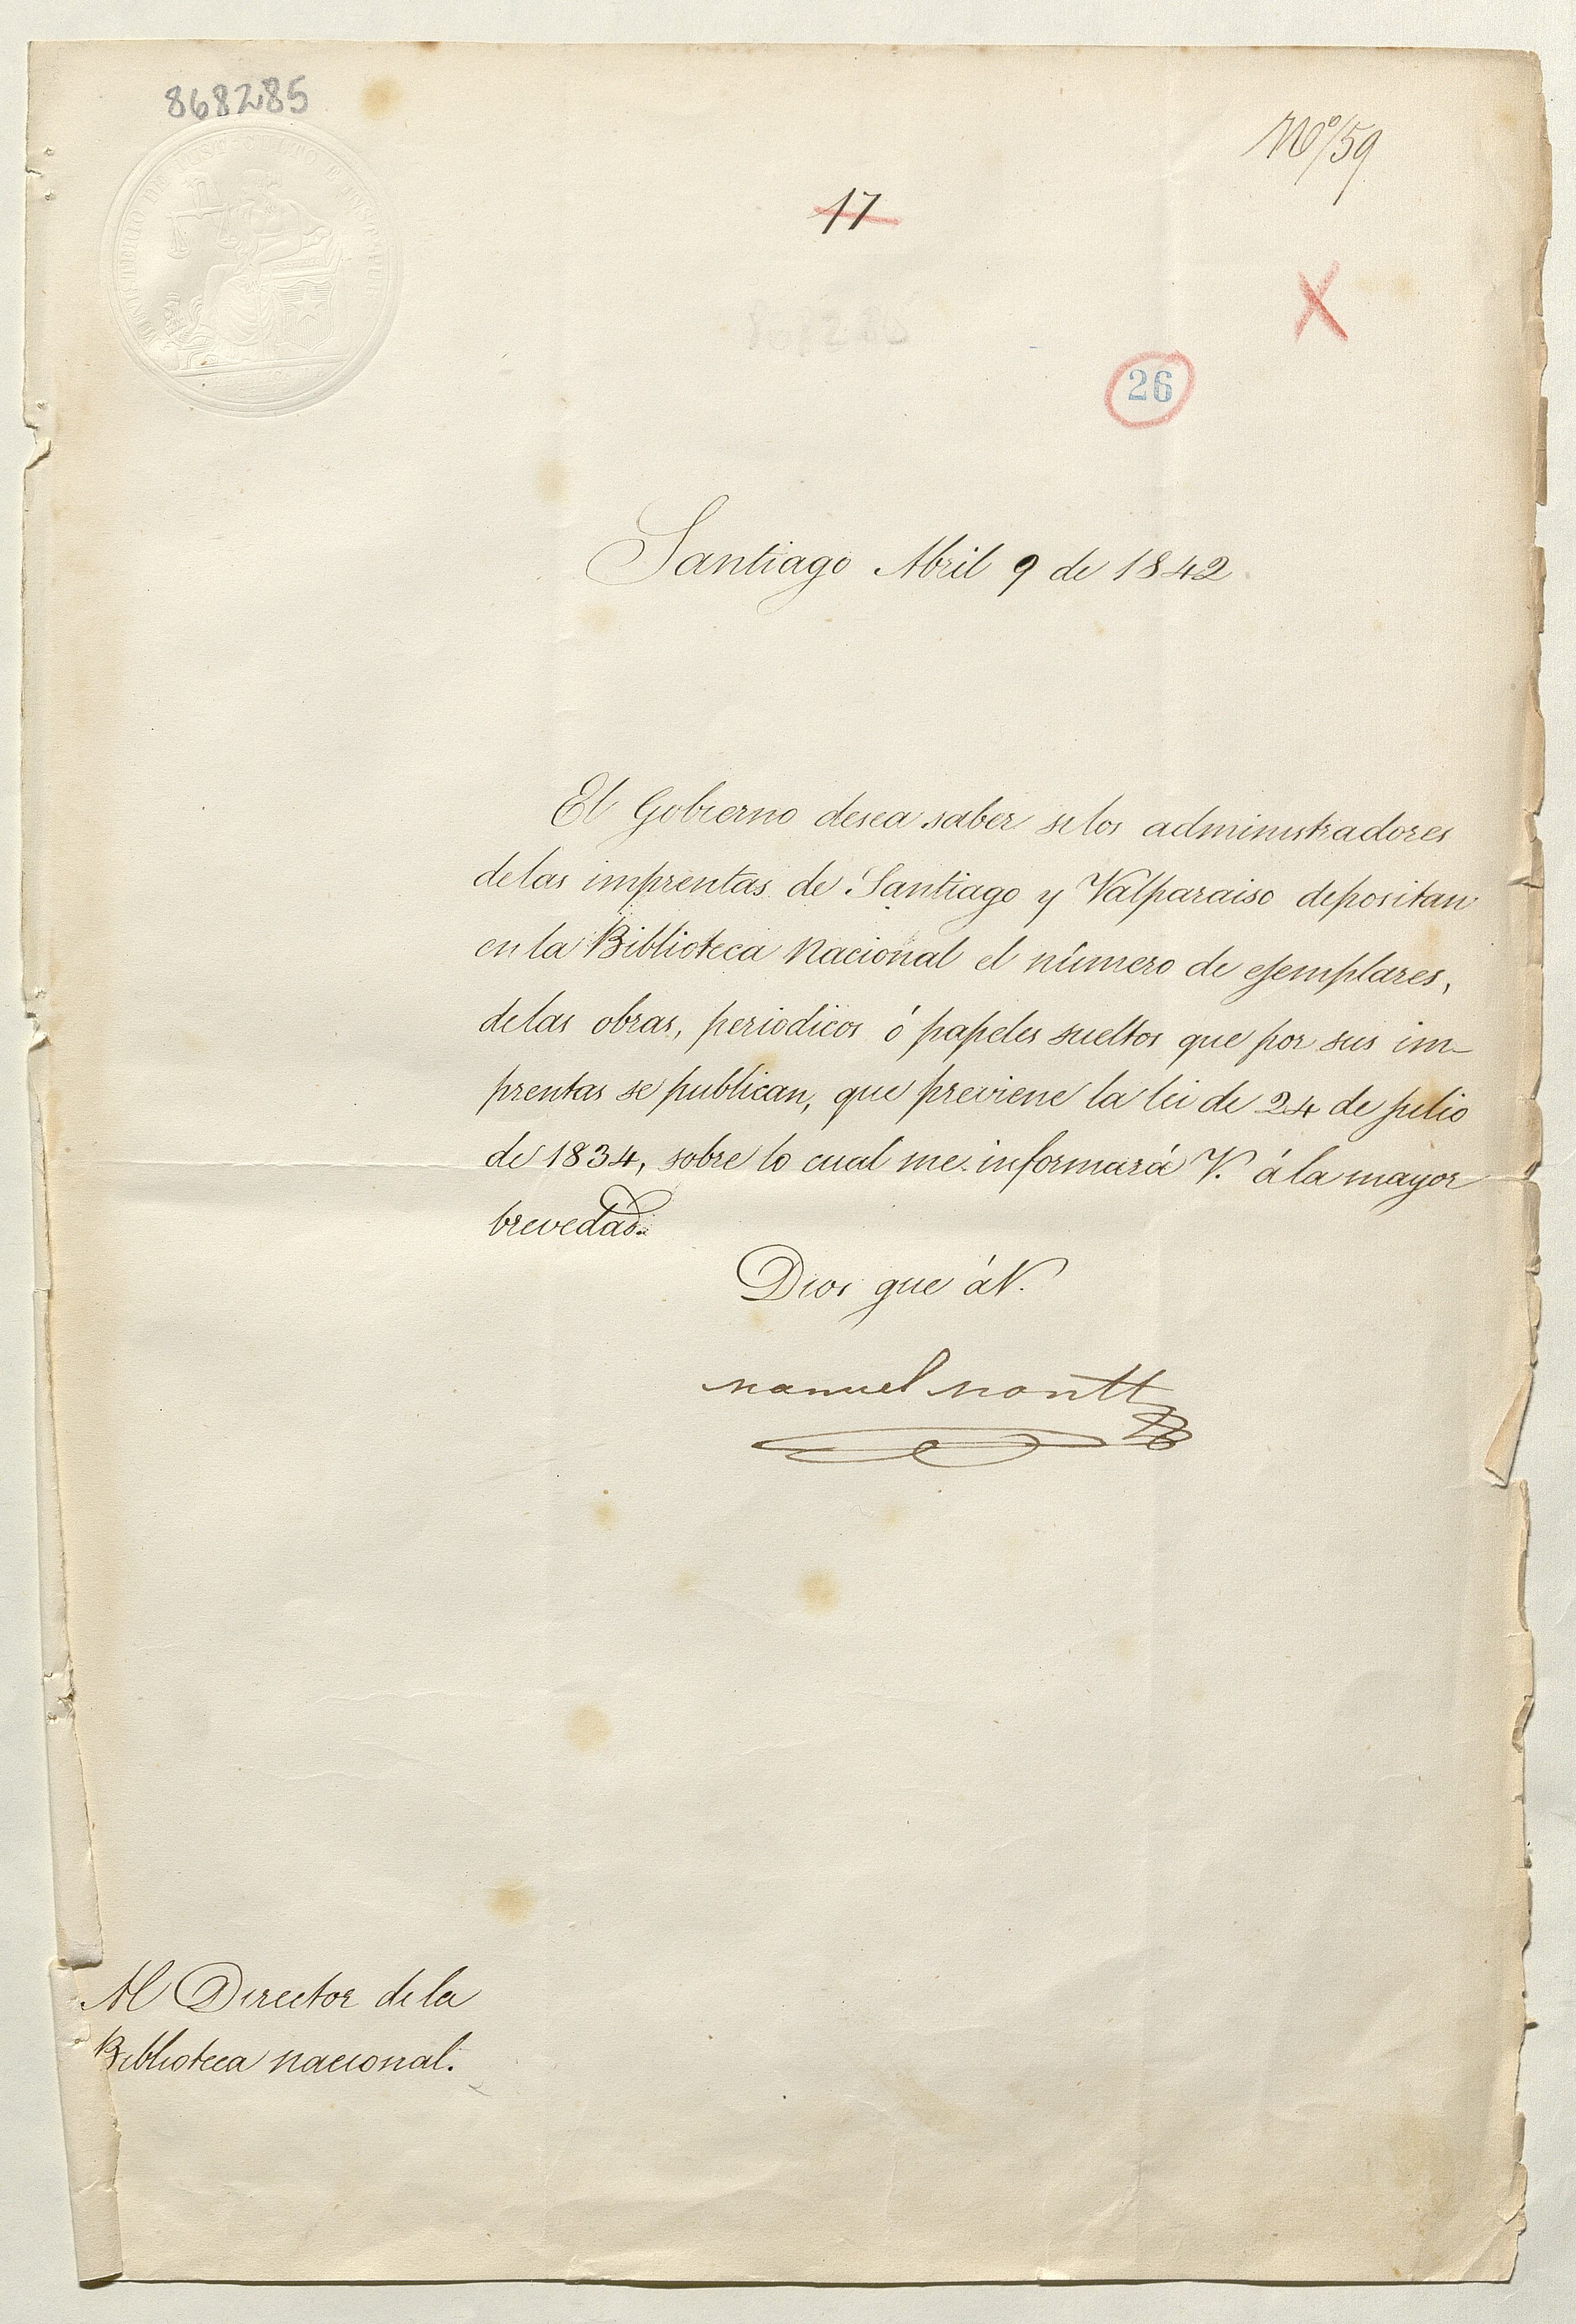 868285
Nº/59
17
26
Santiago Abril 9 de 1842.
El Gobierno desea saber si los administradores
de las imprentas de Santiago y Valparaiso depositan
en la Biblioteca Nacional el número de ejemplares,
de las obras, periodicos ó papeles sueltos que por sus im-
prentas se publican, que previene la lei de 24 de julio
de 1834, sobre lo cual me informará V. á la mayor
brevedad.
Dios gue á V.
Manuel Montt
Al Director de la
Biblioteca nacional.